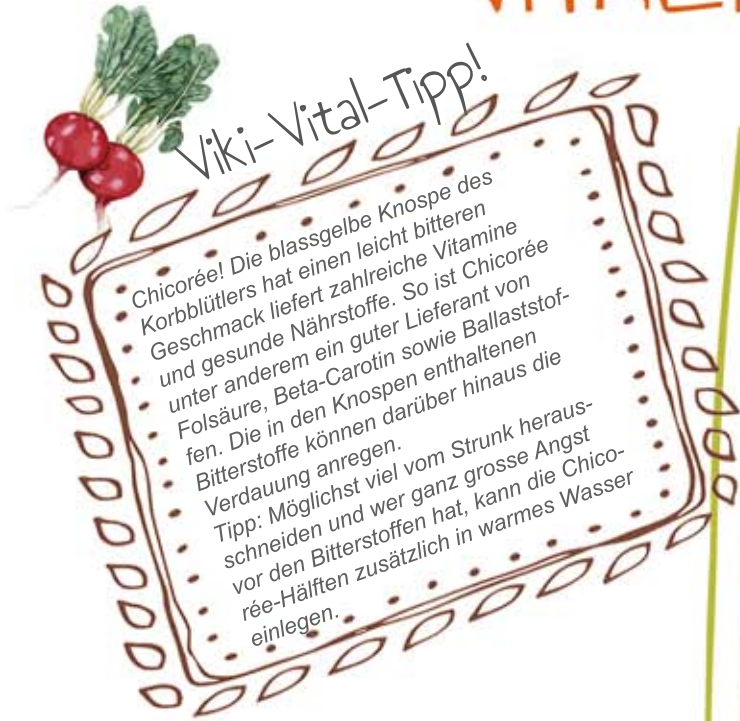 Viki-Vital-Tipp!
Chicorée! Die blassgelbe Knospe des
Korbblütlers hat einen leicht bitteren
Geschmack liefert zahlreiche Vitamine
und gesunde Nährstoffe. So ist Chicorée
unter anderem ein guter Lieferant von
Folsäure, Beta-Carotin sowie Ballaststof-
fen. Die in den Knospen enthaltenen
Bitterstoffe können darüber hinaus die
Verdauung anregen.
Tipp: Möglichst viel vom Strunk heraus-
schneiden und wer ganz grosse Angst
vor den Bitterstoffen hat, kann die Chico-
rée-Hälften zusätzlich in warmes Wasser
einlegen.